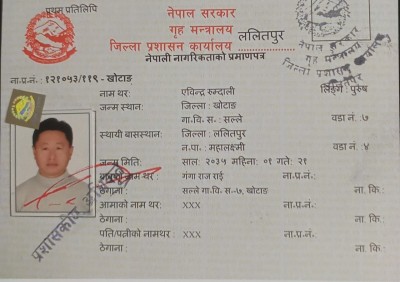 प्रथम प्रतिलिपि
नेपाल सरकार
गृह मन्त्रालय
जिल्ला प्रशासन कार्यालय ललितपुर
नेपाली नागरिकताको प्रमाणपत्र
नेपाल सरकार
गृह मन्त्रालय
जिल्ला प्रशासन
ना.प्र.नं. : १२१०५३/११९ - खोटाङ
नाम थर : एविन्द्र रुन्दाली लिङ्ग : पुरुष
जन्म स्थान : जिल्ला : खोटाङ
गा.वि.स- : सल्ले वडा नं. : ७
स्थायी बासस्थान : जिल्ला : ललितपुर
न.पा. : महालक्ष्मी वडा नं. : ४
जन्म मिति : साल: २०३५ महिना: ०१ गते: २१
नाम थर : गंगा राज राई ना.प्र.नं.
ठेगाना : सल्ले गा.वि.स.-७, खोटाङ ना. कि:
आमाको नाम थर : XXX ना.प्र.नं.
ठेगाना : ना. कि :
पति/पत्नीको नामथर : XXX ना.प्र.नं.
ठेगाना : ना. कि.:
प्रशासकीय